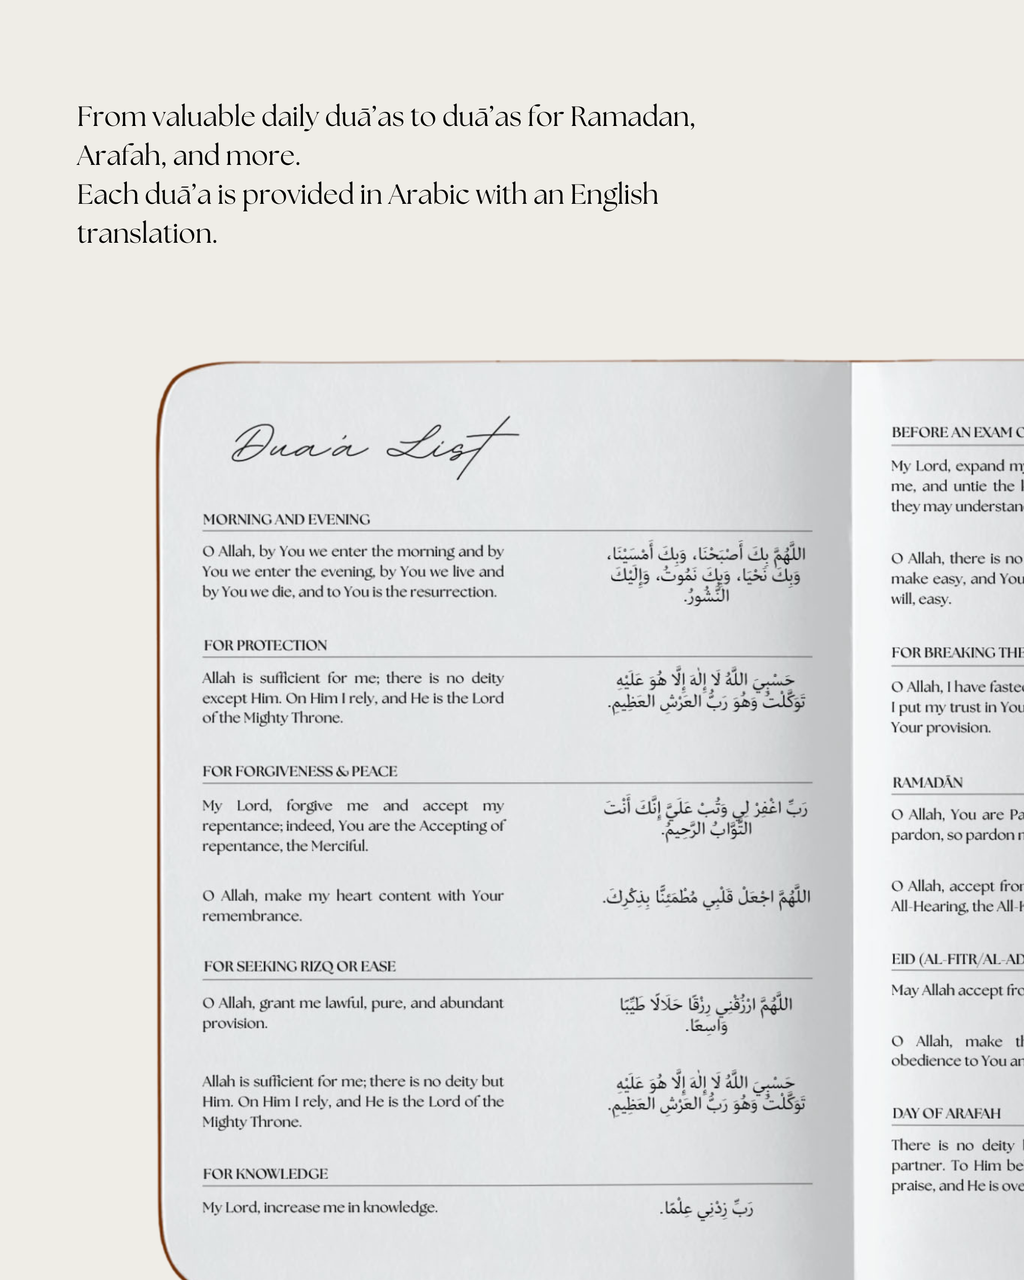 From valuable daily duā’as to duā’as for Ramadan,
Arafah, and more.
Each duā’a is provided in Arabic with an English
translation.
Dua'a List
MORNING AND EVENING
O Allah, by You we enter the morning and by
You we enter the evening, by You we live and
by You we die, and to You is the resurrection.
اللَّهُمَّ بِكَ أَصْبَحْنَا، وَبِكَ أَمْسَيْنَا،
وَبِكَ نَحْيَا، وَبِكَ نَمُوتُ، وَإِلَيْكَ
النُّشُورُ.
FOR PROTECTION
Allah is sufficient for me; there is no deity
except Him. On Him I rely, and He is the Lord
of the Mighty Throne.
حَسْبِيَ اللَّهُ لَا إِلَٰهَ إِلَّا هُوَ عَلَيْهِ
تَوَكَّلْتُ وَهُوَ رَبُّ العَرْشِ العَظِيمِ.
FOR FORGIVENESS & PEACE
My Lord, forgive me and accept my
repentance; indeed, You are the Accepting of
repentance, the Merciful.
رَبِّ اغْفِرْ لِي وَتُبْ عَلَيَّ إِنَّكَ أَنْتَ
التَّوَّابُ الرَّحِيمُ.
O Allah, make my heart content with Your
remembrance.
اللَّهُمَّ اجْعَلْ قَلْبِي مُطْمَئِنًّا بِذِكْرِكَ.
FOR SEEKING RIZQ OR EASE
O Allah, grant me lawful, pure, and abundant
provision.
اللَّهُمَّ ارْزُقْنِي رِزْقًا حَلَالًا طَيِّبًا
وَاسِعًا.
Allah is sufficient for me; there is no deity but
Him. On Him I rely, and He is the Lord of the
Mighty Throne.
حَسْبِيَ اللَّهُ لَا إِلَٰهَ إِلَّا هُوَ عَلَيْهِ
تَوَكَّلْتُ وَهُوَ رَبُّ العَرْشِ العَظِيمِ.
FOR KNOWLEDGE
My Lord, increase me in knowledge.
رَبِّ زِدْنِي عِلْمًا.
BEFORE AN EXAM
My Lord, expand
me, and untie the
they may
O Allah, there is no
make easy, and You
will, easy.
FOR BREAKING THE
O Allah, I have
I put my trust in
Your provision.
RAMADĀN
O Allah, You are
pardon, so pardon
O Allah, accept
All-Hearing, the
EID (AL-FITR/
May Allah accept
O Allah, make
obedience to You
DAY OF ARAFAH
There is no deity
partner. To Him
praise, and He is